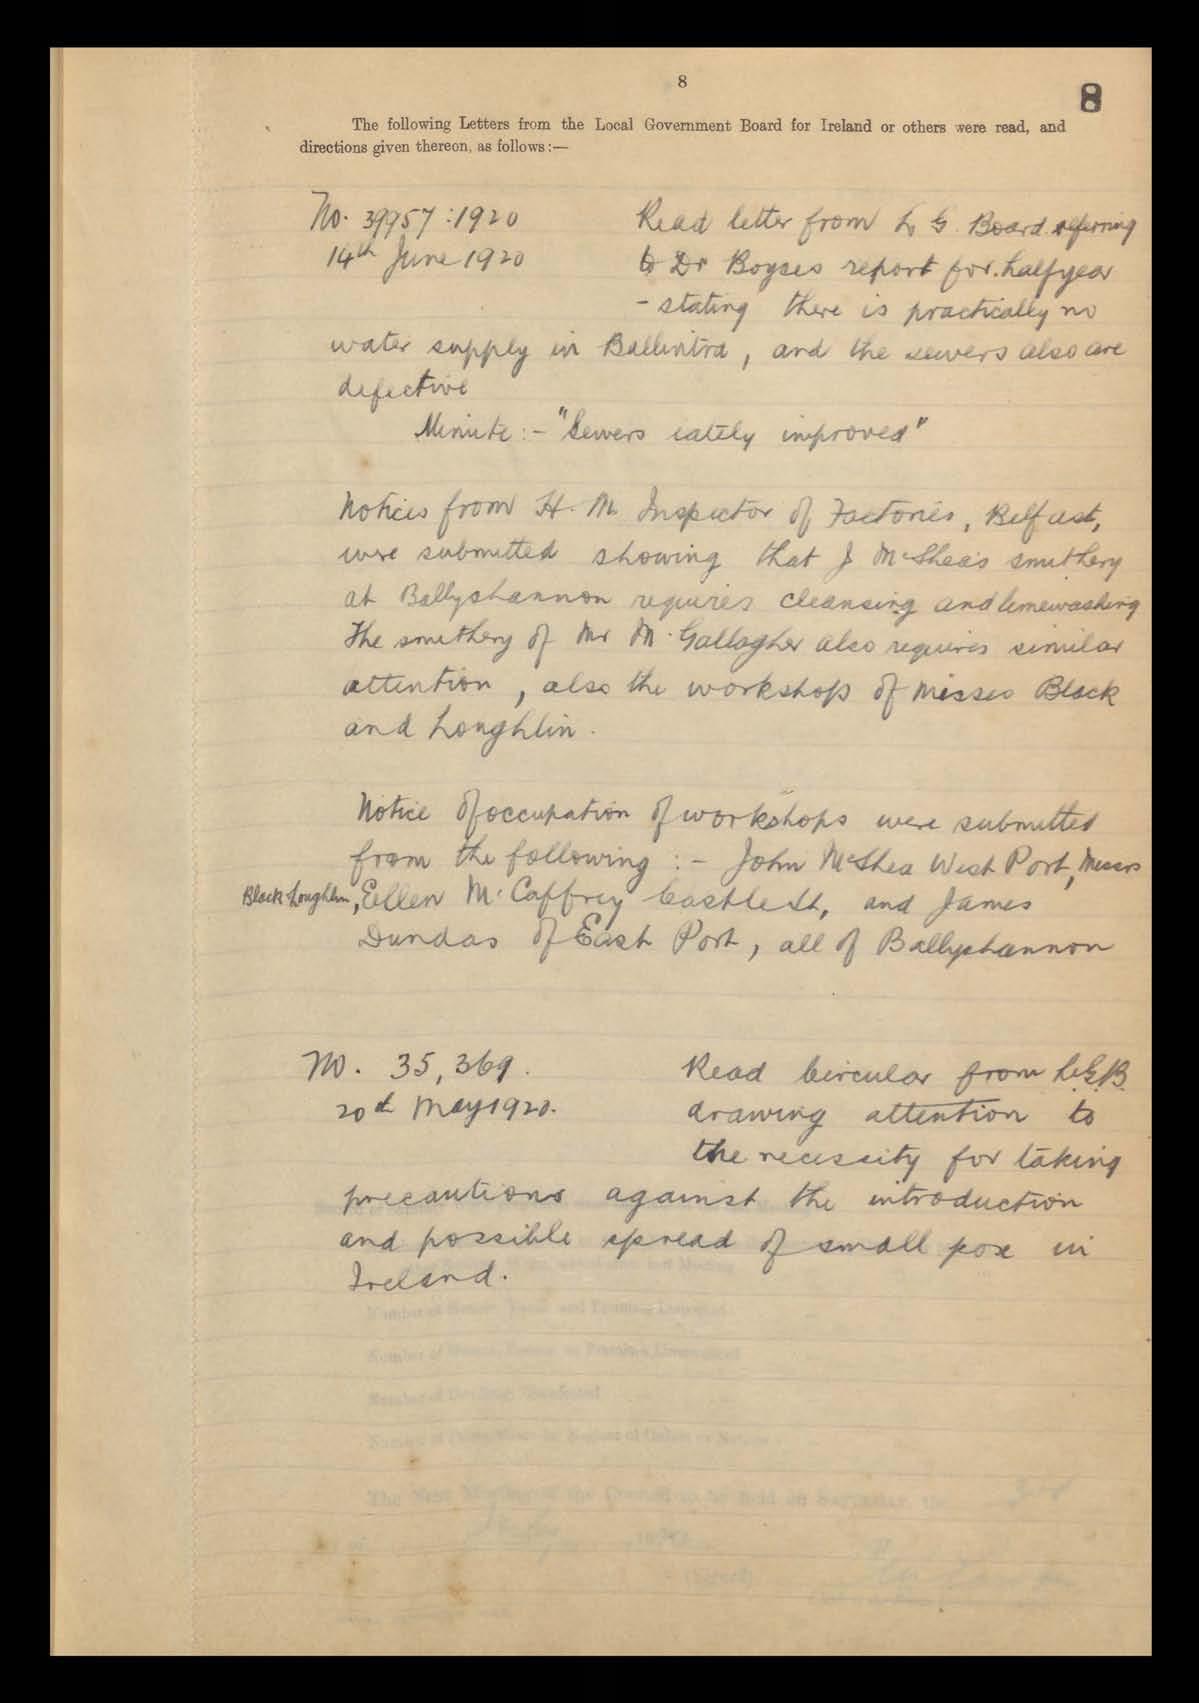 8
8
The following Letters from the Local Government Board for Ireland or others were read, and
directions given thereon, as follows:—
No. 39957:1920
14th June 1920
Read letter from L G. Board referring
to Dr Boyses report for halfyear
- stating there is practically no
water supply in Ballintra, and the sewers also are
defective
Minute:- "Sewers lately improved"
Notices from H. M. Inspector of Factories, Belfast,
were submitted showing that J McShea's smithery
at Ballyshannon requires cleansing and limewashing
The smithery of Mr M. Gallagher also requires similar
attention, also the workshops of Misses Black
and Loughlin.
Notice of occupation of workshops were submitted
from the following :- John McShea West Port, Messrs
Black Loughlin, Ellen McCaffrey Castle St, and James
Dundas of East Port, all of Ballyshannon
No. 35,369.
20th May 1920.
Read Circular from L.G.B.
drawing attention to
the necessity for taking
precautions against the introduction
and possible spread of small pox in
Ireland.